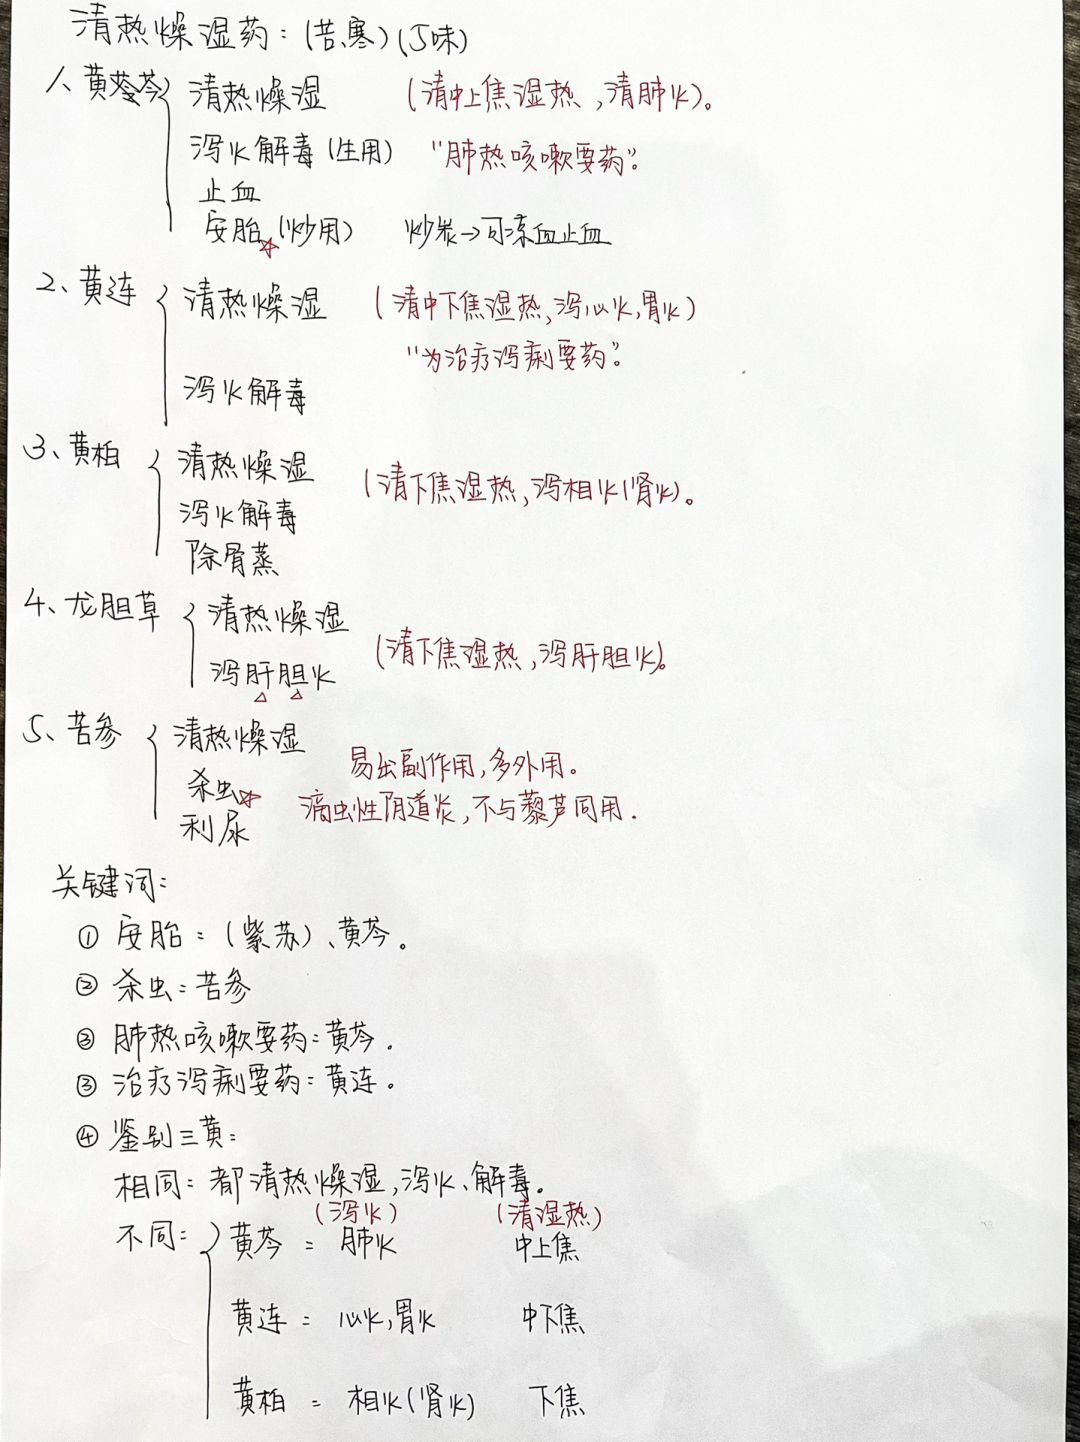 清热燥湿药：(苦.寒)(5味)
1、黄芩 清热燥湿 (清中上焦湿热，清肺火)。
泻火解毒(生用) "肺热咳嗽要药"。
止血
安胎☆(炒用) 炒炭→可凉血止血
2、黄连 清热燥湿 (清中下焦湿热,泻心火,胃火)
"为治疗泻痢要药"。
泻火解毒
3、黄柏 清热燥湿 (清下焦湿热,泻相火(肾火)。
泻火解毒
除骨蒸
4、龙胆草 清热燥湿
泻肝胆火 (清下焦湿热,泻肝胆火)。
5、苦参 清热燥湿
易出副作用,多外用。
杀虫☆ 滴虫性阴道炎,不与藜芦同用.
利尿
关键词：
① 安胎：(紫苏)、黄芩。
② 杀虫：苦参
③ 肺热咳嗽要药：黄芩.
③ 治疗泻痢要药：黄连。
④ 鉴别三黄：
相同：都清热燥湿,泻火、解毒。
(泻火) (清湿热)
不同： 黄芩 = 肺火 中上焦
黄连 = 心火,胃火 中下焦
黄柏 = 相火(肾火) 下焦